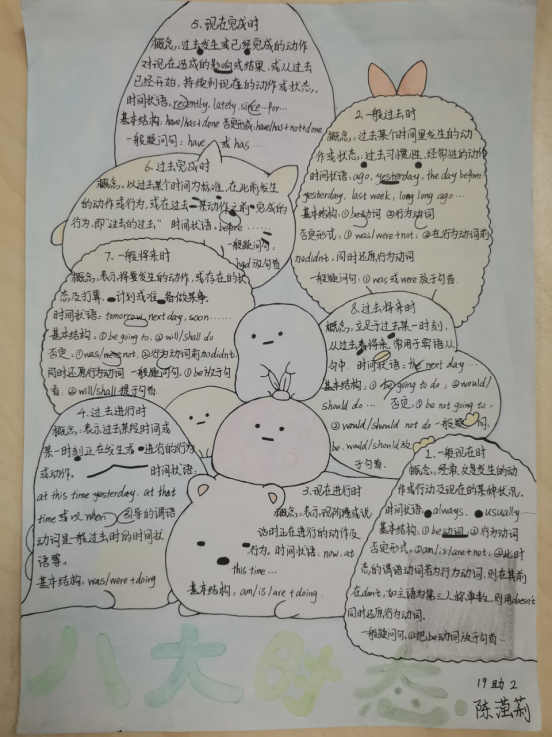 5、现在完成时
概念:过去发生或已经完成的动作
对现在造成的影响或结果、或从过去
已经开始,持续到现在的动作或状态。
时间状语:recently, lately, since…for…
基本结构:have/has+done 否定形式:have/has+not+done
一般疑问句:have 或 has…
2、一般过去时
概念:过去某个时间里发生的动
作或状态;过去习惯性、经常性的动作
时间状语:ago, yesterday, the day before
yesterday, last week, long long ago…
基本结构:①be动词 ②行为动词
否定形式:①was/were+not, ②在行为动词前
加didn't,同时还原行为动词
一般疑问句:①was或were放于句首
6、过去完成时
概念:以过去某个时间为标准,在此前发生
的动作或行为,或在过去某动作之前完成的
行为,即"过去的过去" 时间状语:before…
一般疑问句:
had放句首
7、一般将来时
概念:表示将要发生的动作,或存在的状
态及打算、计划或准备做某事。
时间状语:tomorrow, next day, soon……
基本结构:①be going to, ②will/shall do
否定:①was/were not, ②行为动词前加didn't
同时还原行为动词 一般疑问句:①be放于句
首,②will/shall提于句首
8、过去将来时
概念:立足于过去某一时刻,
从过去看将来,常用于宾语从
句中. 时间状语:the next day…
基本结构:①be going to do, ②would/
should do… 否定:①be not going to,
②would/should not do 一般疑问句:
be、would/should放
于句首.
4、过去进行时
概念:表示过去某段时间或
某一时刻正在发生或进行的行为
或动作。 时间状语:
at this time yesterday, at that
time 或以 when 引导的谓语
动词是一般过去时的时间状
语等。
基本结构:was/were+doing
3、现在进行时
概念:表示现阶段或说
话时正在进行的动作及
行为。时间状语:now, at
this time…
基本结构:am/is/are+doing.
1、一般现在时
概念:经常、反复发生的动
作或行为及现在的某种状况。
时间状语:always、usually……
基本结构:①be动词 ②行为动词
否定形式:①am/is/are+not;②此时
态的谓语动词若为行为动词、则在其前
加don't,如主语为第三人称单数,则用doesn't
同时还原行为动词。
一般疑问句,①把be动词放于句首…
八大时态.
19助2
陈滢莉